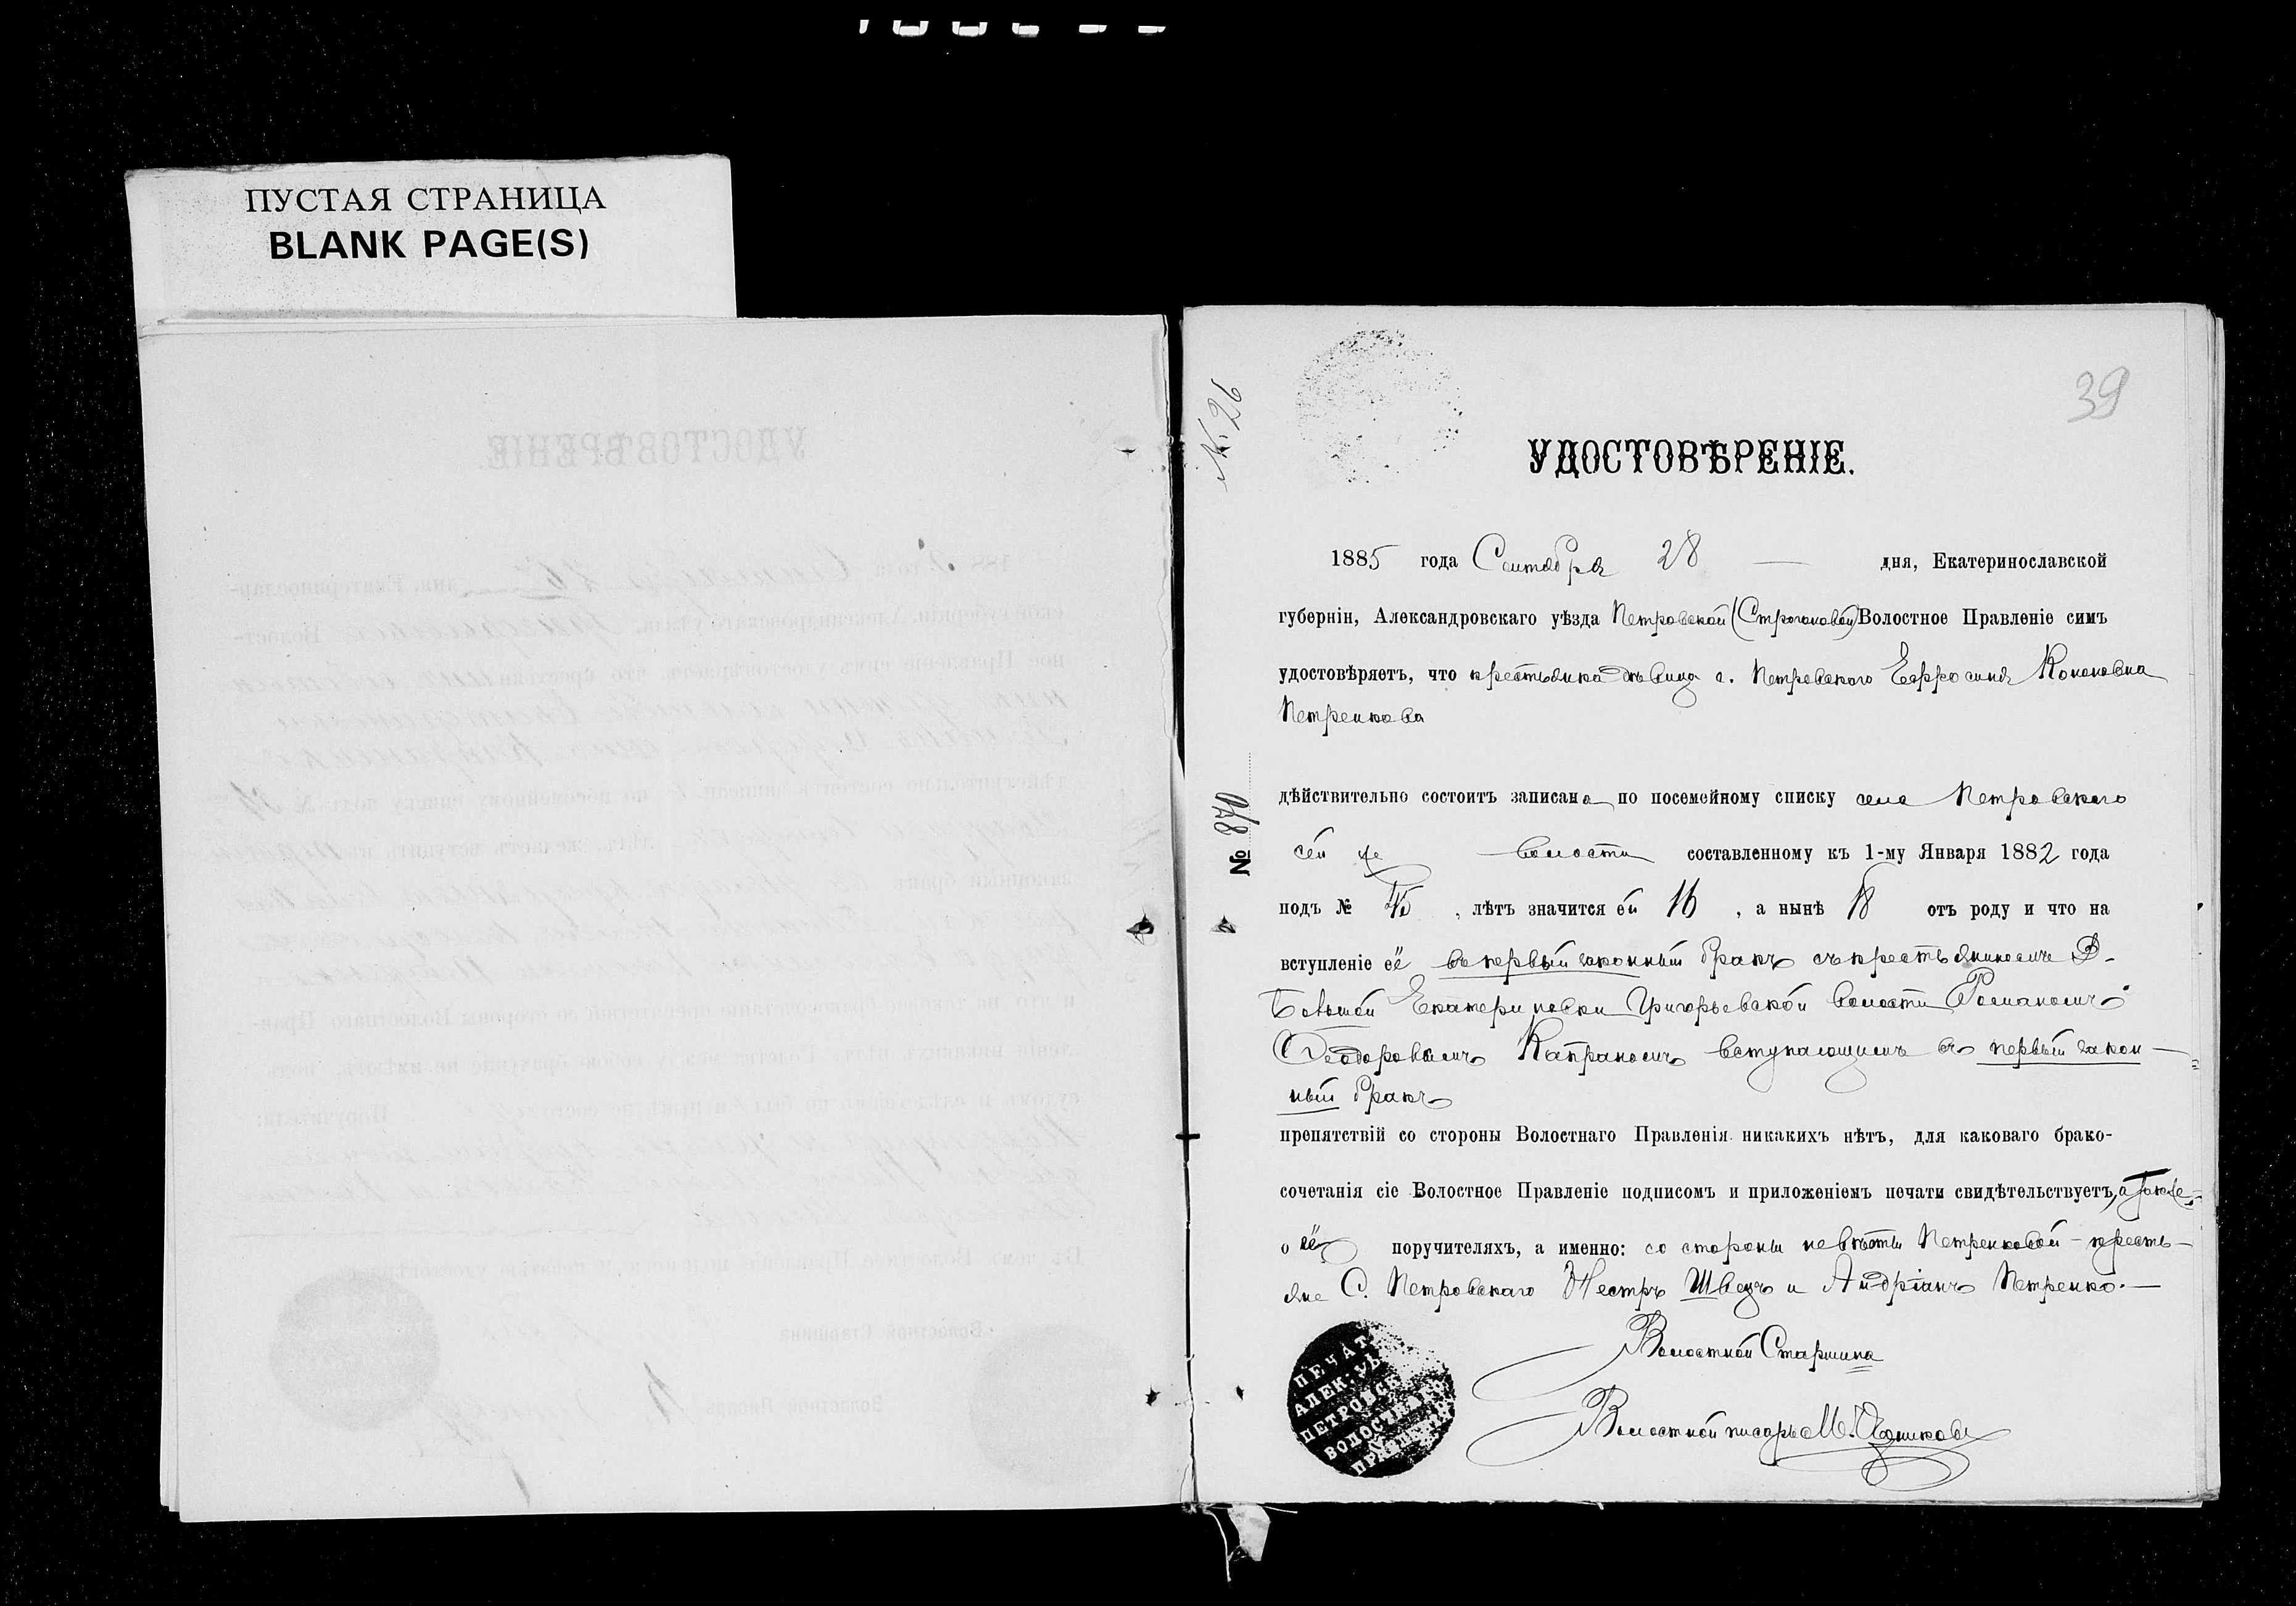 ПУСТАЯ СТРАНИЦА
BLANK PAGE(S)
39
№ 26
УДОСТОВѢРЕНІЕ.
1885 года Сентября 28 — дня, Екатеринославской
губерніи, Александровскаго уѣзда Петровской (Строгоновой) Волостное Правленіе симъ
удостовѣряетъ, что крестьянка дѣвица с. Петровскаго Ефросинія Кононовна
Петренкова
дѣйствительно состоитъ записана по посемейному списку села Петровскаго
сей же волости составленному къ 1-му Января 1882 года
№ 870
подъ № , лѣтъ значится ей 16 , а нынѣ 18 отъ роду и что на
вступленіе её въ первый законный бракъ съ крестьяниномъ Д.
Большой Екатериновки Григорьевской волости Романомъ
Феодоровымъ Капраномъ вступающимъ въ первый закон—
ный бракъ
препятствій со стороны Волостнаго Правленія никакихъ нѣтъ, для каковаго брако-
сочетанія сіе Волостное Правленіе подписомъ и приложеніемъ печати свидѣтельствуетъ, а также
о её поручителяхъ, а именно: со стороны невѣсты Петренковой – кресть—
яне С. Петровскаго Нестръ Швецъ и Андріанъ Петренко.—
Волостной Старшина
Волостной писарь М.
ПЕЧАТ
АЛЕК. УѢ
ПЕТРОВСК
ВОЛОСТНАГО
ПРАВЛЕНІЯ